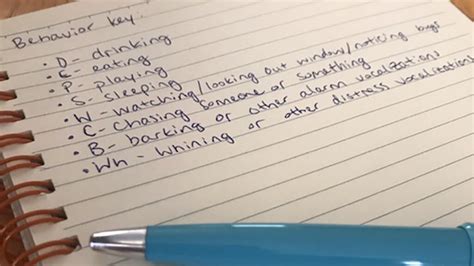 Behavior key:
• D - drinking
• E - eating
• P - playing
• S - sleeping
• W - watching/looking out window/noticing bugs
• C - chasing someone or something
• B - barking or other alarm vocalizations
• Wh - whining or other distress vocalizations